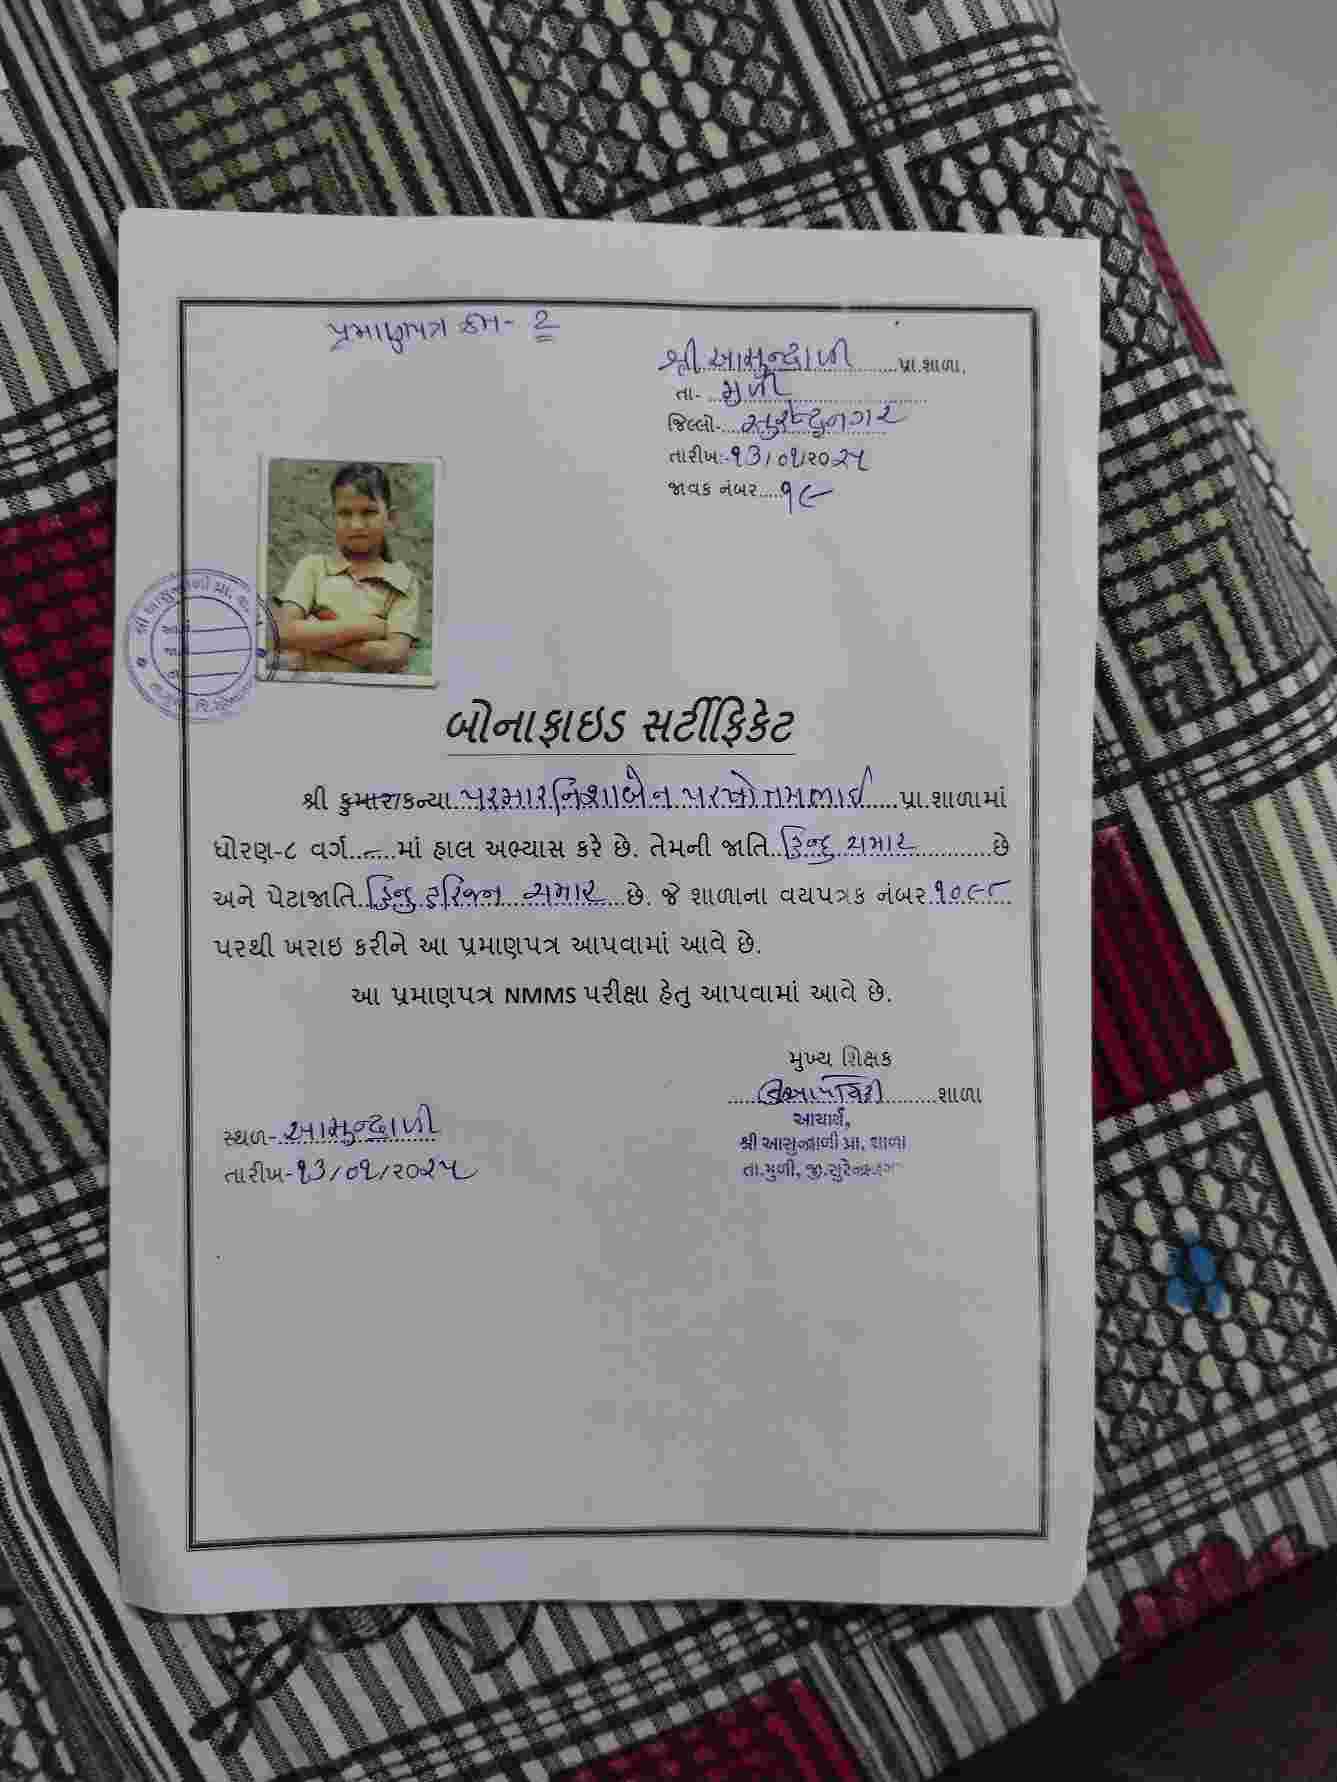 પ્રમાણપત્ર ક્રમ- 2
શ્રી આસુન્દ્રાળી પ્રા.શાળા.
તા- મુળી
જિલ્લો- સુરેન્દ્રનગર
તારીખ:-૧૩/૦૧/૨૦૨૫
જાવક નંબર ૧૯
બોનાફાઇડ સર્ટીફિકેટ
શ્રી કુમાર/કન્યા પરમાર નિશાબેન પરષોત્તમભાઈ પ્રા.શાળામાં
ધોરણ-૮ વર્ગ - માં હાલ અભ્યાસ કરે છે. તેમની જાતિ હિન્દુ ચમાર છે
અને પેટાજાતિ હિન્દુ હરિજન ચમાર છે. જે શાળાના વયપત્રક નંબર ૧૦૯૮
પરથી ખરાઇ કરીને આ પ્રમાણપત્ર આપવામાં આવે છે.
આ પ્રમાણપત્ર NMMS પરીક્ષા હેતુ આપવામાં આવે છે.
મુખ્ય શિક્ષક
શાળા
આચાર્ય,
શ્રી આસુન્દ્રાળી પ્રા. શાળા
તા.મુળી, જી.સુરેન્દ્રનગર
સ્થળ- આસુન્દ્રાળી
તારીખ-૧૩/૦૧/૨૦૨૫